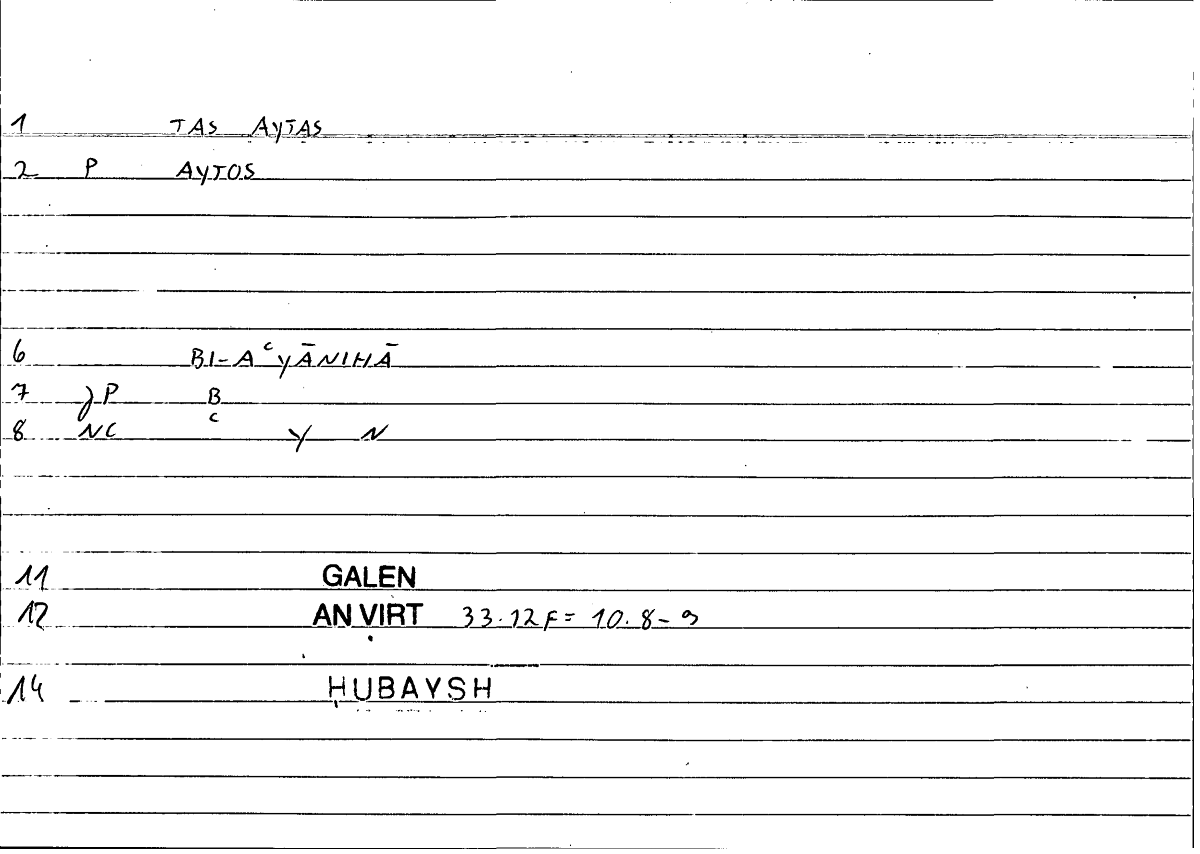 1 TAS AYTAS
2 P AYTOS
6 BI-AᶜYĀNIHĀ
7 P B
8 NC ᶜ Y N
11 GALEN
12 AN VIRT 33.12F = 10.8-9
14 ḤUBAYSH